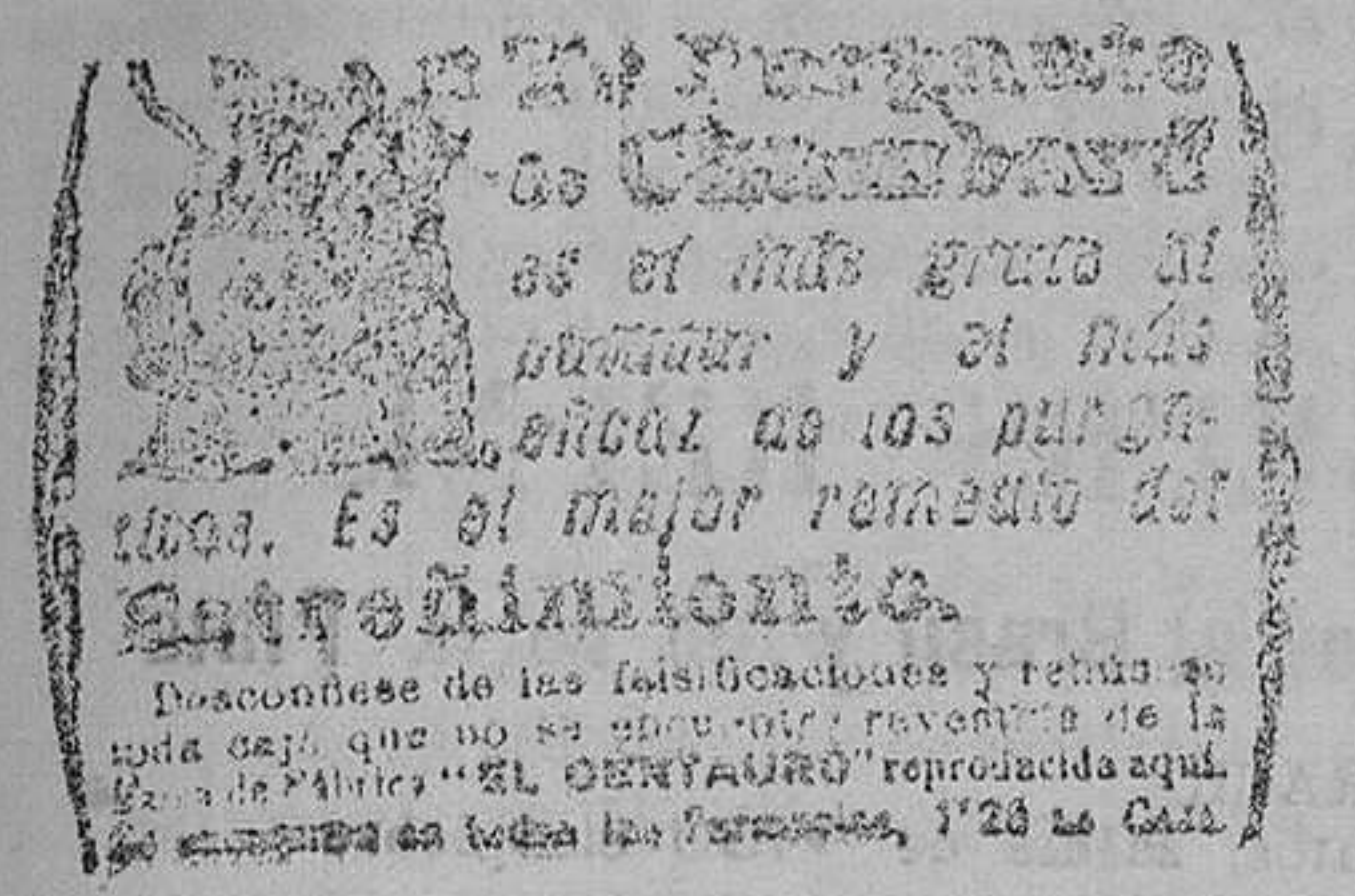 El Purgante
de Chambard
es el más grato al
paladar y el más
eficaz de los purga-
tivos. Es el mejor remedio del
Estreñimiento.
Desconfiese de las falsificaciones y rehúsese
toda caja que no se encuentre revestida de la
Marca de Fábrica "EL CENTAURO" reproducida aquí.
Se encuentra en todas las Farmacias, 1'26 la Caja